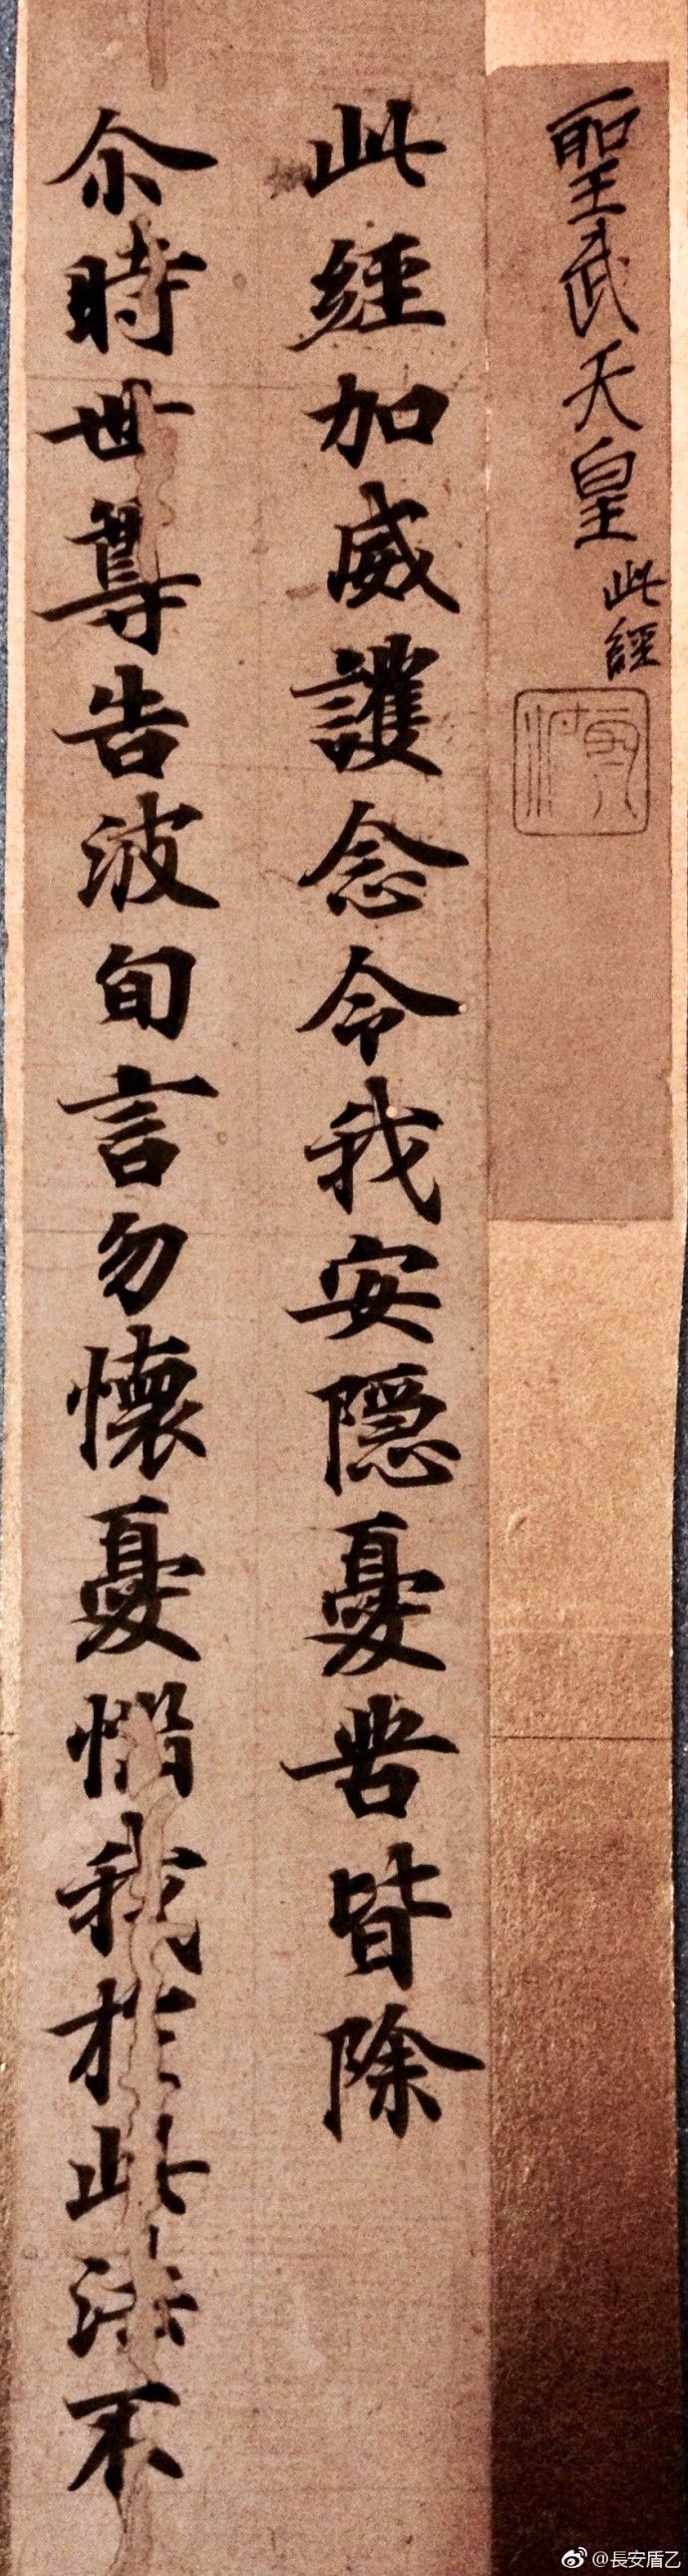 聖武天皇 此經
此經加威護念令我安隱憂苦皆除
尒時世尊告波旬言勿懷憂惱我於此法不
@長安盾乙